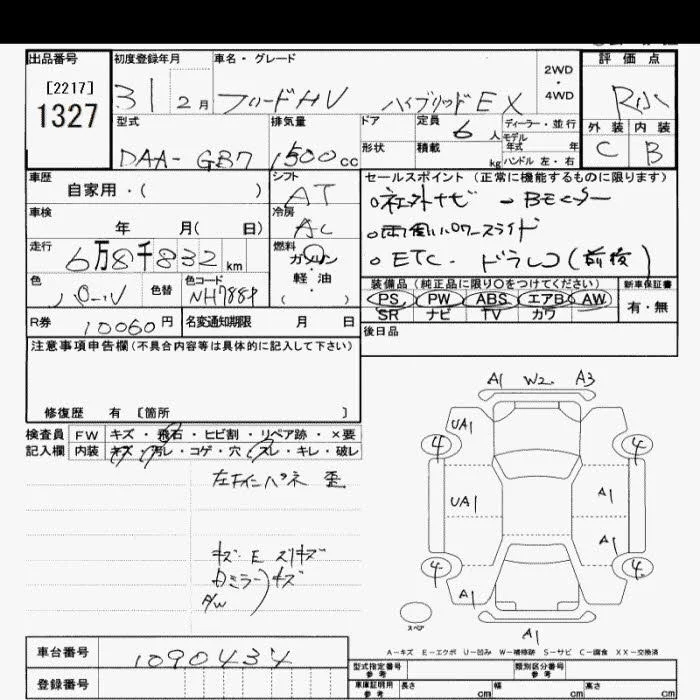 出品番号
[2217]
1327
初度登録年月
31 2月
車名・グレード
フリードHV ハイブリッドEX
2WD
・
4WD
評価点
外装 内装
C B
型式
DAA- GB7
排気量
1500cc
ドア
形状
定員
6人
積載
kg
ディーラー・並行
モデル
年式 年
ハンドル 左・右
車歴
自家用・( )
シフト
AT
車検
年 月( 日)
冷房
AC
走行
6万8千832km
燃料
ガソリン
軽・油
( )
色
色替
色コード
R券
10060円
名変通知期限 月 日
セールスポイント (正常に機能するものに限ります)
○社外ナビ - Bモニター
○両側パワースライド
○ETC. ドラレコ(前後)
装備品 (純正品に限り○をつけてください)
PS PW ABS エアB AW
SR ナビ TV カワ
新車保証書
有・無
後日品
注意事項申告欄 (不具合内容等は具体的に記入して下さい)
修復歴 有 [箇所 ]
検査員
記入欄
FW キズ・飛石・ヒビ割・リペア跡・×要
内装 キズ・汚レ・コゲ・穴・スレ・キレ・破レ
キズ・E スリキズ
ミラー キズ
A1 W2 A3
UA1
4 4
UA1 A1
A1
4 4
A1
A1
スペア
A-キズ E-エクボ U-凹み W-補修跡 S-サビ C-腐食 XX-交換済
車台番号
1090434
登録番号
型式指定番号
参考
類別区分番号
参考
車庫証明用
参考
長さ cm 幅 cm 高さ cm